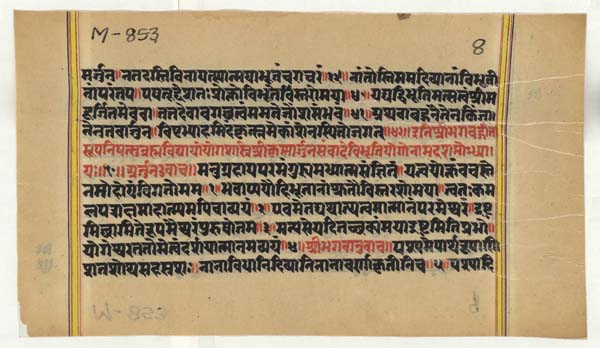 M-853
8
मर्जुन॥ नतदस्तिविनायत्स्यान्मयाभूतंचराचरं॥३९॥ नांतोस्तिममदिव्यानांविभूती
नांपरंतप॥ एषतूद्देशतःप्रोक्तोविभूतेर्विस्तरोमया॥४०॥ यद्यद्विभूतिमत्सत्वंश्रीम
दूर्जितमेववा॥ तत्तदेवावगछत्वंममतेजोंशसंभवं॥४१॥ अथवाबहुनैतेनकिंज्ञा
तेनतवार्जुन॥ विष्टभ्याहमिदंकृत्स्नमेकांशेनस्थितोजगत्॥४२॥ इतिश्रीभगवद्गीता
सूपनिषत्सुब्रह्मविद्यायांयोगशास्त्रेश्रीकृष्णार्जुनसंवादेविभूतियोगोनामदशमोध्या
यः॥१०॥ अर्जुनउवाच॥ मदनुग्रहायपरमंगुह्यमध्यात्मसंज्ञितं॥ यत्वयोक्तंवचस्ते
नमोहोयंविगतोमम॥१॥ भवाप्ययौहिभूतानांश्रुतौविस्तरशोमया॥ त्वत्तःकम
लपत्राक्षमाहात्म्यमपिचाव्ययं॥२॥ एवमेतद्यथात्थत्वमात्मानंपरमेश्वर॥ द्रष्टु
मिच्छामितेरूपमैश्वरंपुरुषोत्तम॥३॥ मन्यसेयदितच्छक्यंमयाद्रष्टुमितिप्रभो॥
योगेश्वरततोमेत्वंदर्शयात्मानमव्ययं॥४॥ श्रीभगवानुवाच॥ पश्यमेपार्थरूपाणि
शतशोथसहस्रशः॥ नानाविधानिदिव्यानिनानावर्णाकृतीनिच॥५॥ पश्यादि